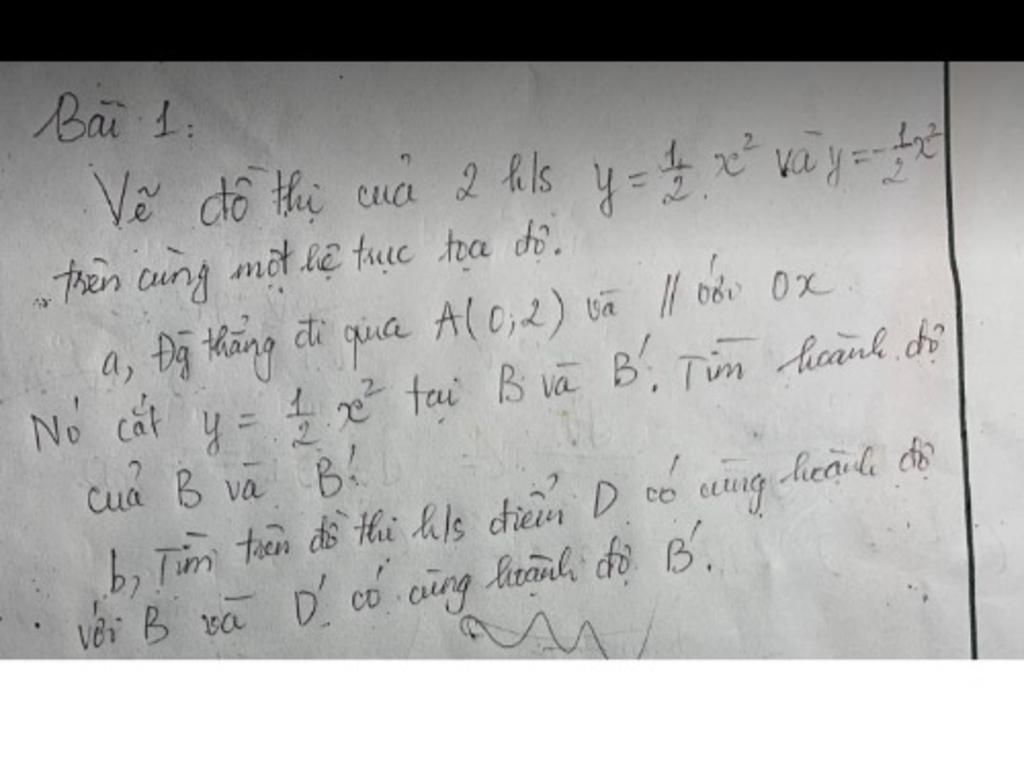 Bài 1:
Vẽ đồ thị của 2 h/s y = 1/2 . x² và y = -1/2 x²
trên cùng một hệ trục tọa độ.
a, Đg thẳng đi qua A(0;2) và // với Ox.
Nó cắt y = 1/2 . x² tại B và B'. Tìm hoành độ
của B và B'.
b, Tìm trên đồ thị h/s điểm D có cùng hoành độ
với B và D' có cùng hoành độ B'.